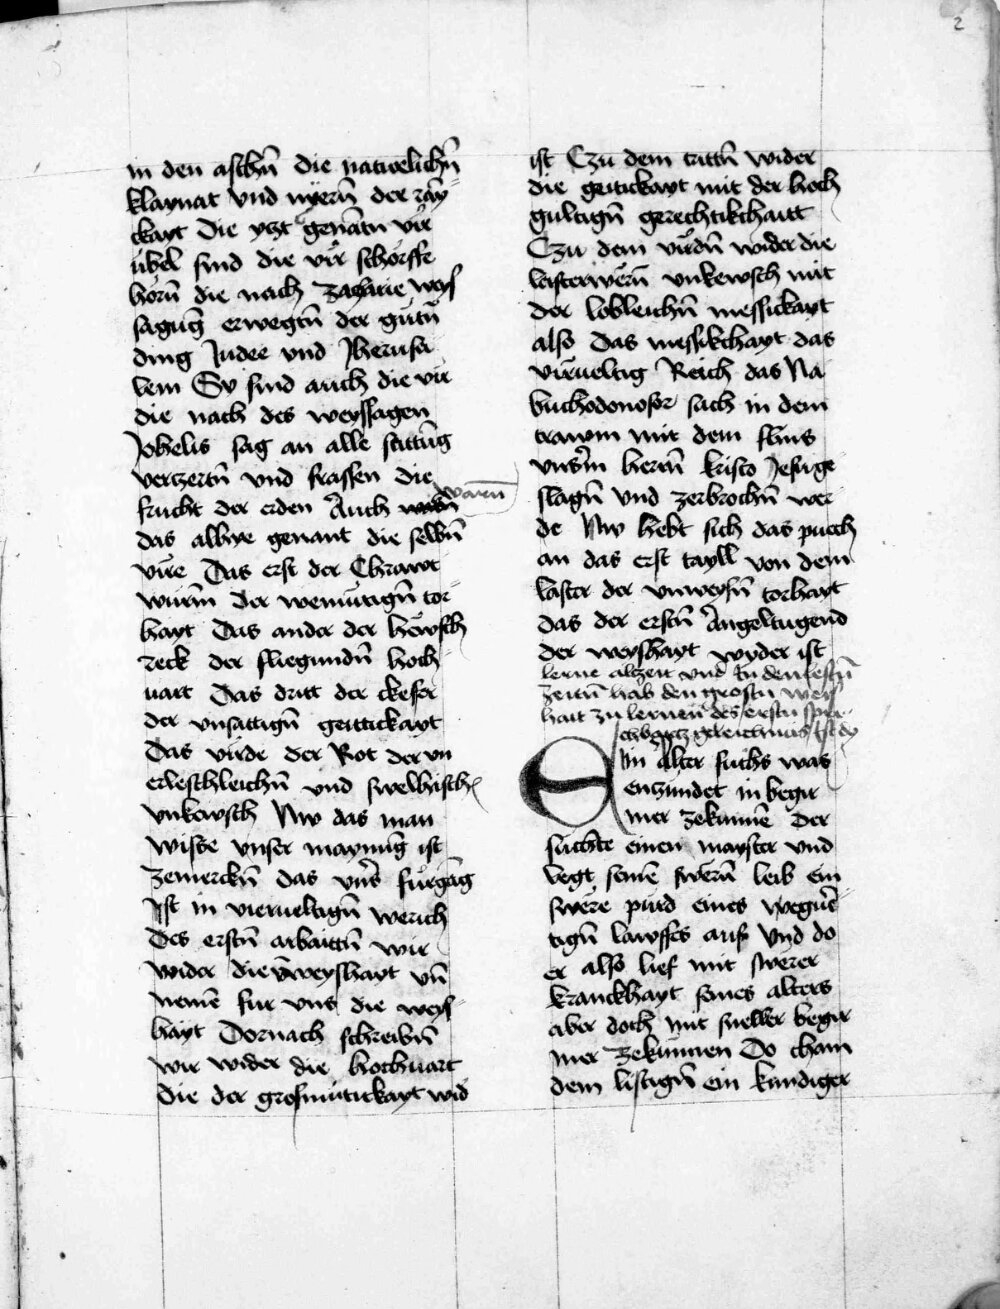 2
in den aschn̄ die naturlichn̄
klaynat vnd nyern̄ der rāy
ckayt die yczt genātn vir
vbel sind die vir schorffe
hörn̄ die nach zacharie weyſ
ſagūg erwegtn̄ der gūtn̄
ding Judee vnd Jheruſa
lem Sy ſind auch die vir
die nach des weyſſagen
Johelis ſag an alle ſāttūg
verczertn̄ vnd fraſſen die
frucht der erden Auch warn̄
das alhye genant die ſelbn̄
vire Das erſt der Chrawt
wurm̄ der wemutign̄ tor
hayt Das ander der hewſch
reck der fliegundn̄ hoch
uart Das dritt der ckefer
der vnſattign̄ geittickayt
Das virde der Rot der vn
erleſchleichn̄ vnd ſwelhiſch
vnkewſch Nw das man
wiſſe vnſer maynūg iſt
zemerckn̄ das vnſ̄ furgāg
iſt in vierueltign̄ werich
Des erſtn̄ arbaittn̄ wir
wider die vnweyſhayt vn̄
nemē fur vns die weyſ
hayt Dornach ſchreibn̄
wir wider die hochuart
die der groſmutickayt wid
iſt Czu dem trittn̄ wider
die geitickayt mit der hoch
gultign̄ gerechtikchaitt
Czu dem virdn̄ wider die
leſterwern̄ vnkewſch mit
der lobleichn̄ meſſickayt
alſo das meſſikchayt das
virueltig Reich das Na
buchodonoſor ſach in dem
trawm mit dem ſtins
vnſ̄m herrn̄ kriſto Jeſu ge
ſlagn̄ vnd zerbrochn̄ wer
de Nw hebt ſich das puech
an das erſt tayll von dem
laſter der vnweyſn̄ torhayt
das der erſtn̄ Angeltugend
der weyſhayt wyder iſt
lerne alczeit vnd in den leſtn̄
zeitn̄ hab den groſtn weiſ
hait zu lernen̄ des erſtn ſpru
chwortz geleichnus iſt do
Ein Alter fuchs was
enczundet in begir
mer zekunnē Der
ſuchte einen mayſter vnd
legt ſeinē ſwern̄ leib ein
ſwere purd eines wegūe
tign̄ lawffes auf Vnd do
er alſo lief mit ſwerer
kranckhayt ſeines alters
aber doch mit ſneller begir
mer zekunnen Do cham
dem liſtign̄ ein kundiger